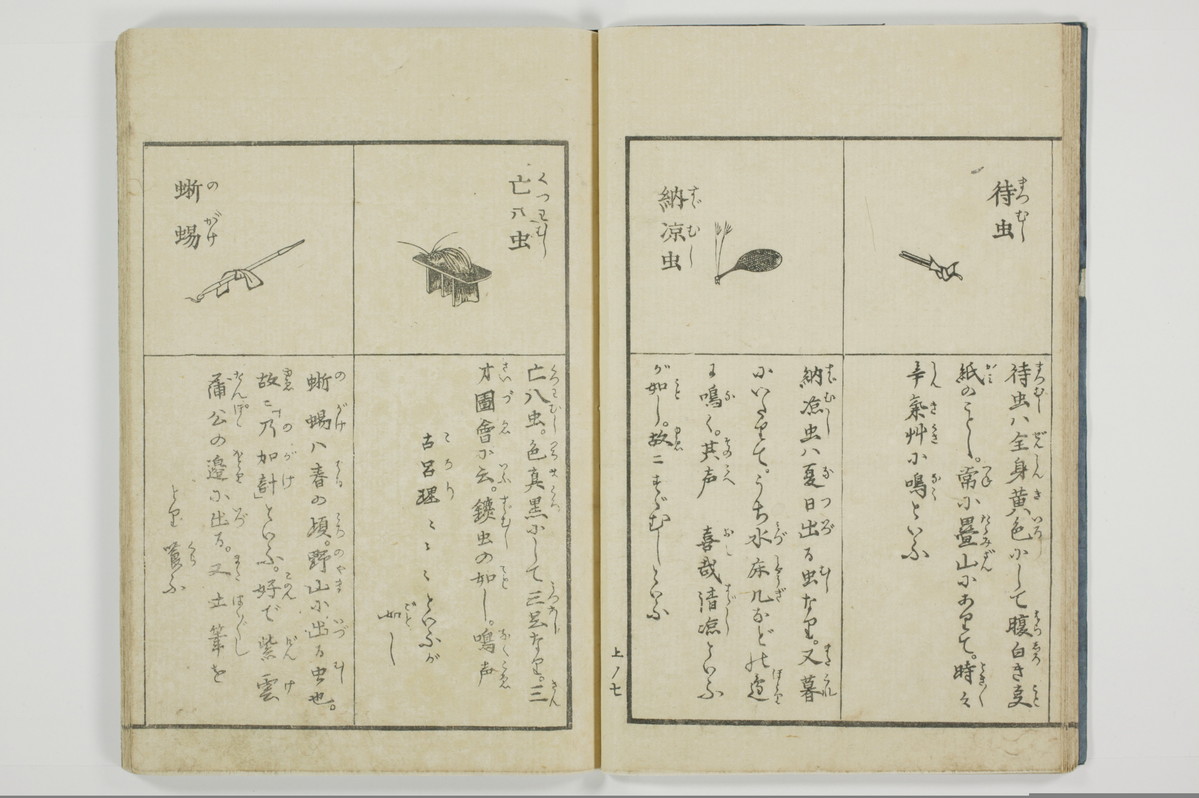 待虫
まつむし
待虫ハ全身黄色にして腹白き支
紙のごとし。常に疊山にありて。時々
辛氣艸に鳴といふ
納凉虫
すゞむし
納凉虫ハ夏日出る虫なり。又暮
にいたりて。うち水床几などの邉
に鳴く。其声 喜哉清凉といふ
が如し。故ニすゞむしといふ
上ノ七
亡八虫
くつわむし
亡八虫。色真黒にして三足なり。三
才圖會に云。鐵虫の如し。鳴声
古呂理〻〻〻といふが
如し
蜥蜴
のがけ
蜥蜴ハ春の頃。野山に出る虫也。
故ニ「乃加計」といふ。好で紫雲
蒲公の邉に出る。又土筆を
とり喰ふ